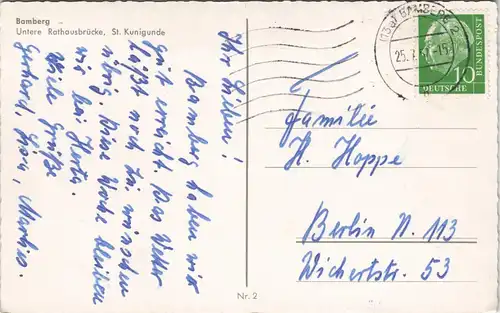 Bamberg
Untere Rathausbrücke, St. Kunigunde
Ihr Lieben!
Bamberg haben wir
gut erreicht. Das Wetter
läßt noch zu wünschen
übrig. Eine Woche bleiben
wir bei Herta.
Viele Grüße
Gerhard, Lisa, Markus.
(13a) BAMBERG 2
25.7.
10
DEUTSCHE
BUNDESPOST
Familie
H. Hoppe
Berlin N. 113
Wichertstr. 53
Nr. 2